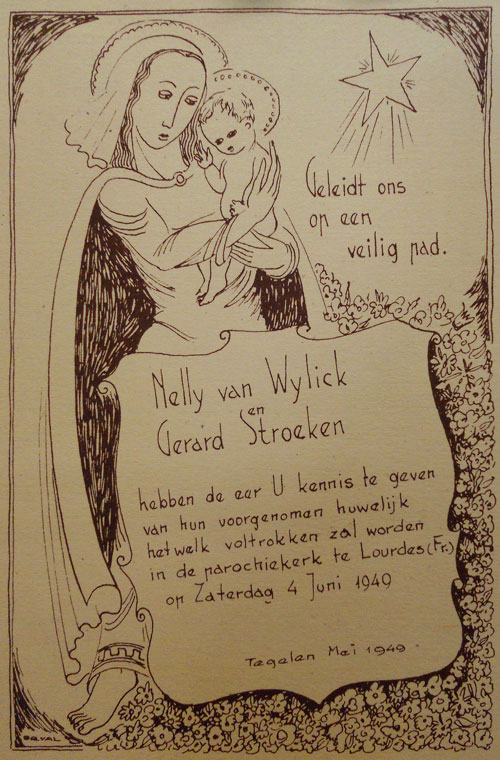 Geleidt ons
op een
veilig pad.
Nelly van Wylick
en
Gerard Stroeken
hebben de eer U kennis te geven
van hun voorgenomen huwelijk
hetwelk voltrokken zal worden
in de parochiekerk te Lourdes (Fr.)
op Zaterdag 4 Juni 1949
Tegelen Mei 1949